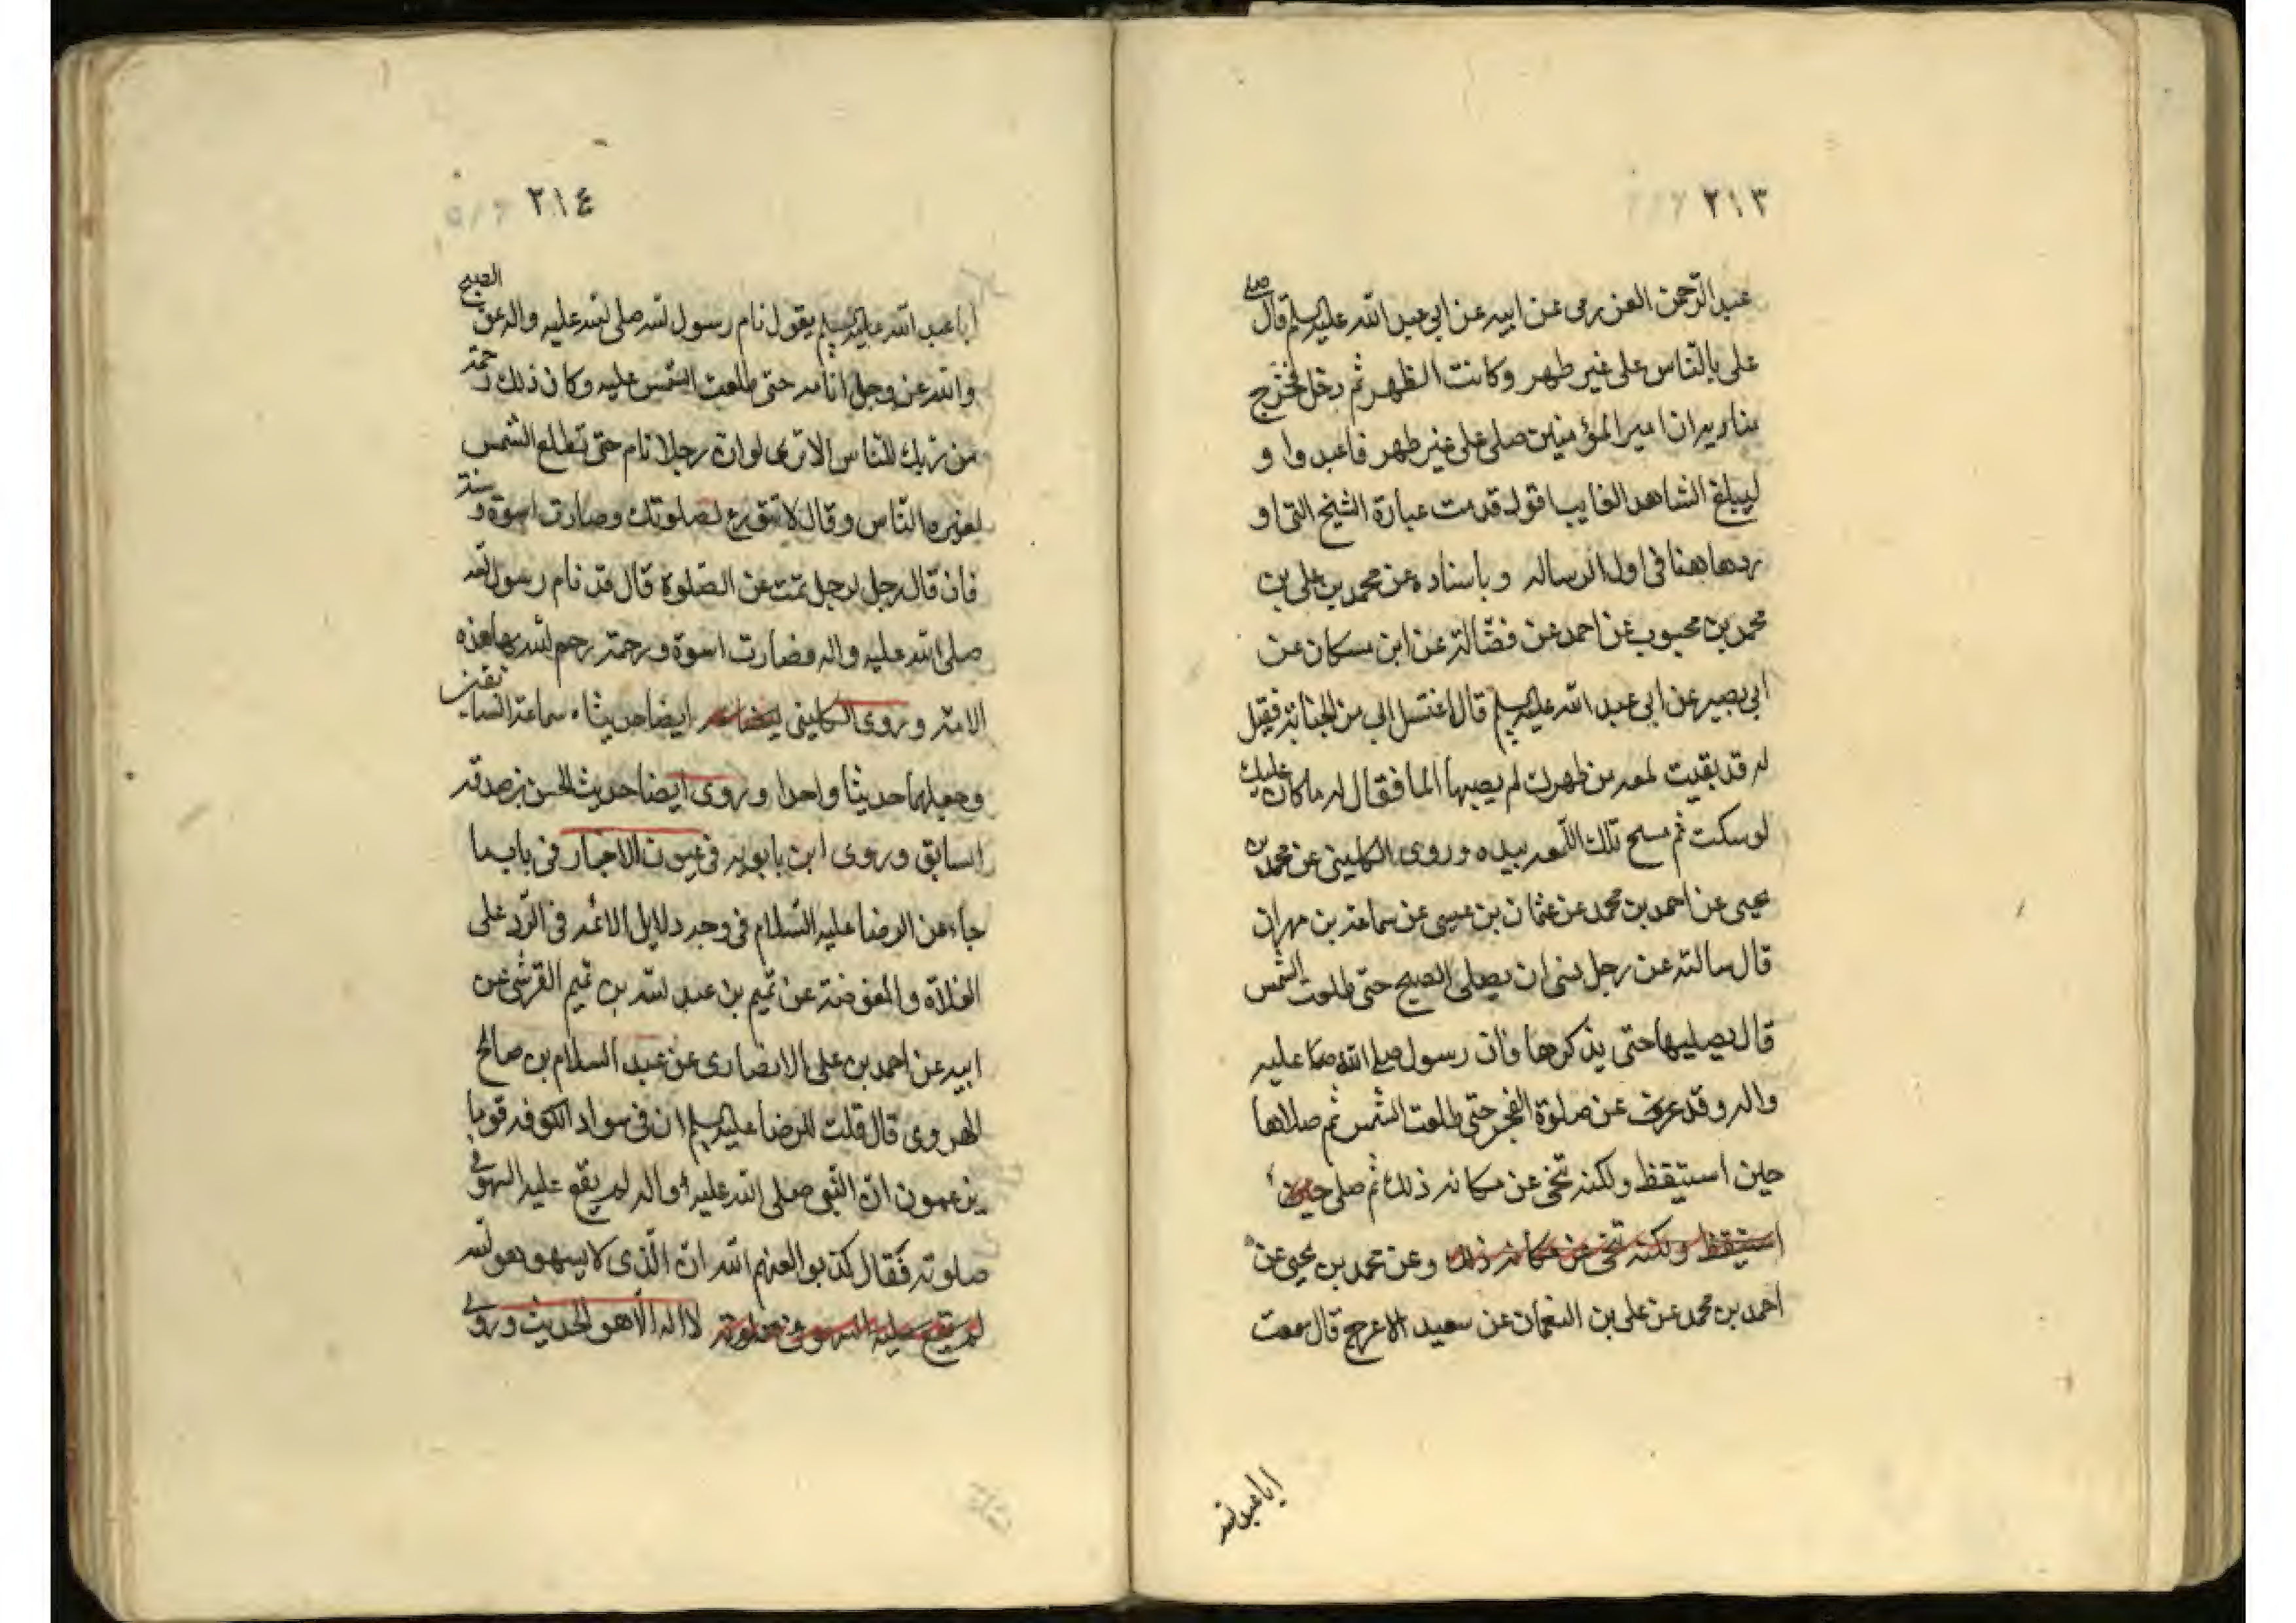 ٢١٣
عبد الرحمن العزرمى عن ابيه عن ابى عبد الله عليه السلم قال صلى
على بالناس على غير طهر وكانت الظهر ثم دخل فخرج
مناديه ان امير المؤمنين صلى على غير طهر فاعيدوا و
ليبلغ الشاهد الغايب اقول قدمت عبارة الشيخ التى او
ردها هنا فى اول الرساله وباسناده عن محمد بن على بن
محمد بن محبوب عن احمد عن فضالة عن ابن مسكان عن
ابى بصير عن ابى عبد الله عليه السلم قال اغتسل ابى من الجنابة فقيل
له قد بقيت لمعه من ظهرك لم يصبها الما فقال له ما كان عليك
لو سكت ثم مسح تلك اللمعه بيده وروى الكلينى عن محمد بن
يحيى عن احمد بن محمد عن عثمان بن عيسى عن سماعه بن مهران
قال سالته عن رجل نسى ان يصلى الصبح حتى طلعت الشمس
قال يصليها حتى يذكرها فان رسول الله صلى الله عليه
واله رقد عن صلوة الفجر حتى طلعت الشمس ثم صلاها
حين استيقظ ولكنه تنحى عن مكانه ذلك ثم صلى حين
استيقظ ولكنه تنحى عن مكانه ذلك وعن محمد بن يحيى عن
احمد بن محمد عن على بن النعمان عن سعيد الاعرج قال سمعت
ابا عبد الله
٢١٤
ابا عبد الله عليه السلم يقول نام رسول الله صلى الله عليه واله عن الصبح
والله عز وجل انامه حتى طلعت الشمس عليه وكان ذلك رحمة
من ربك للناس الا ترى لو ان رجلا نام حتى تطلع الشمس
لعيره الناس وقال لا تتورع لصلوتك وصارت اسوة وسنة
فان قال رجل لرجل نمت عن الصلوة قال قد نام رسول الله
صلى الله عليه واله فصارت اسوة ورحمة رحم الله بها هذه
الامة وروى الكلينى ايضا حديثا سماعة السابقين
وجعلهما حديثا واحدا وروى ايضا حديث الحسن بن صدقه
السابق وروى ابن بابويه فى عيون الاخبار فى باب ما
جاء عن الرضا عليه السلام فى وجه دلايل الائمه فى الرد على
الغلاة والمفوضة عن تميم بن عبد الله بن تميم القرشى عن
ابيه عن احمد بن على الانصارى عن عبد السلام بن صالح
الهروى قال قلت للرضا عليه السلم ان فى سواد الكوفه قوما
يزعمون ان النبى صلى الله عليه واله لم يقع عليه السهو فى
صلوته فقال كذبوا لعنهم الله ان الذى لا يسهو هو الله
لم يقع عليه السهو فى صلوته لا اله الا هو الحديث وروى